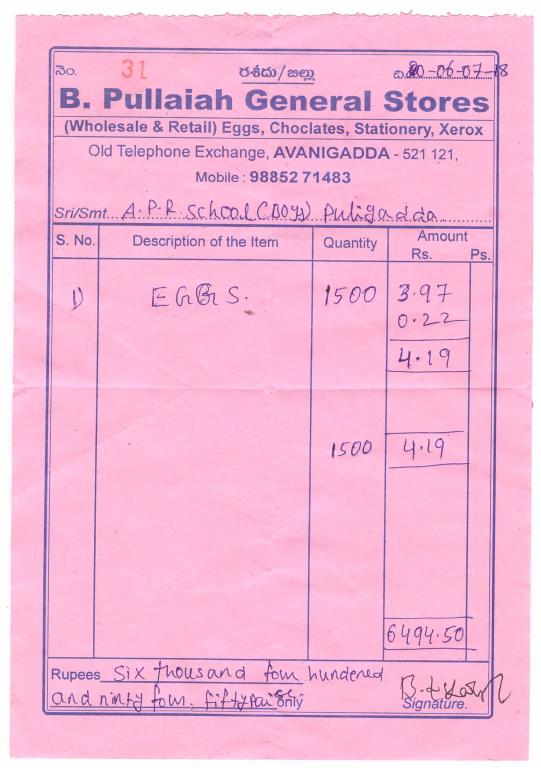 నెం. 31 రశీదు/బిల్లు 06-07-18
B. Pullaiah General Stores
(Wholesale & Retail) Eggs, Choclates, Stationery, Xerox
Old Telephone Exchange, AVANIGADDA - 521 121,
Mobile : 98852 71483
Sri/Smt. A.P.R. School (Boys) Puligadda
S. No. Description of the Item Quantity Amount
Rs. Ps.
1) EGGS. 1500 3.97
0.22
4.19
1500 4.19
6494.50
Rupees Six thousand four hundered
and ninty four. fifty paise only
Signature.